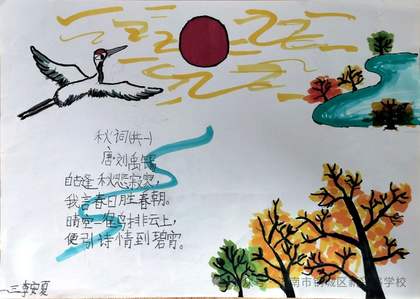 秋词(其一)
唐·刘禹锡
自古逢秋悲寂寥，
我言秋日胜春朝。
晴空一鹤排云上，
便引诗情到碧霄。
一三李安夏
南市钢城区新
学校